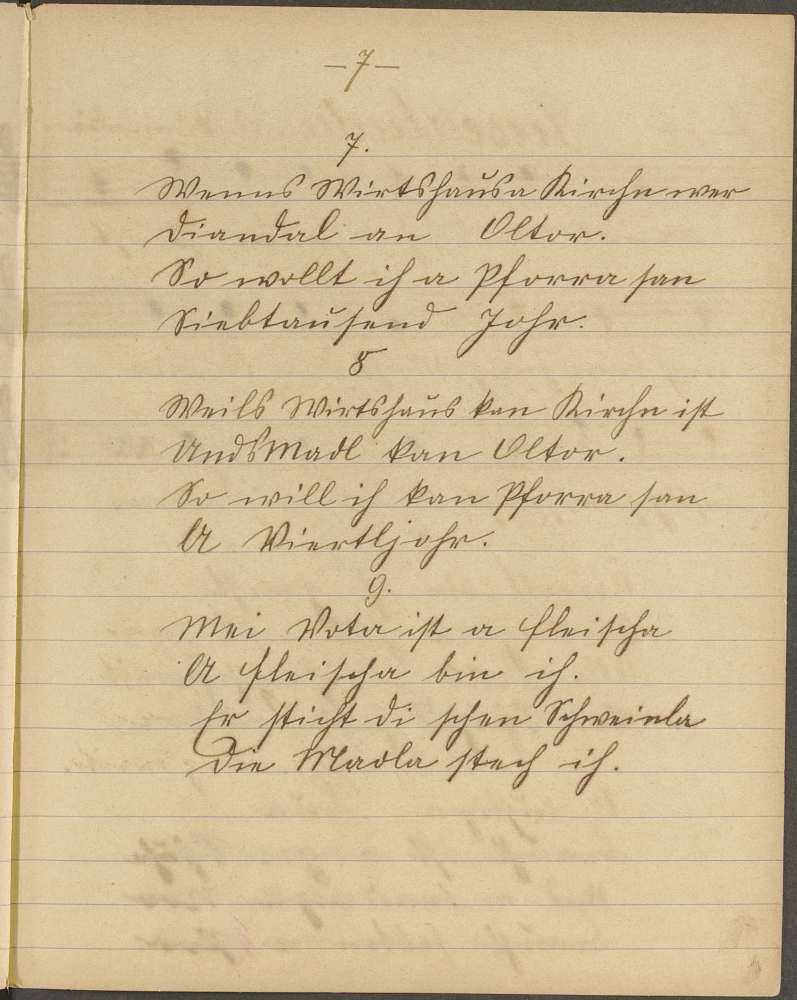 — 7 —
7.
Wenns Wirtshaus a Kirche wer
Diandal an Oltor.
So wollt ich a Pforra san
Siebtausend Johr.
8
Weils Wirtshaus kan Kirche ist
Und s Madl kan Oltor.
So will ich kan Pforra san
A Viertljohr.
9.
Mei Vota ist a fleischa
A fleischa bin ich.
Er sticht di schen Schweinla
Die Madla stech ich.